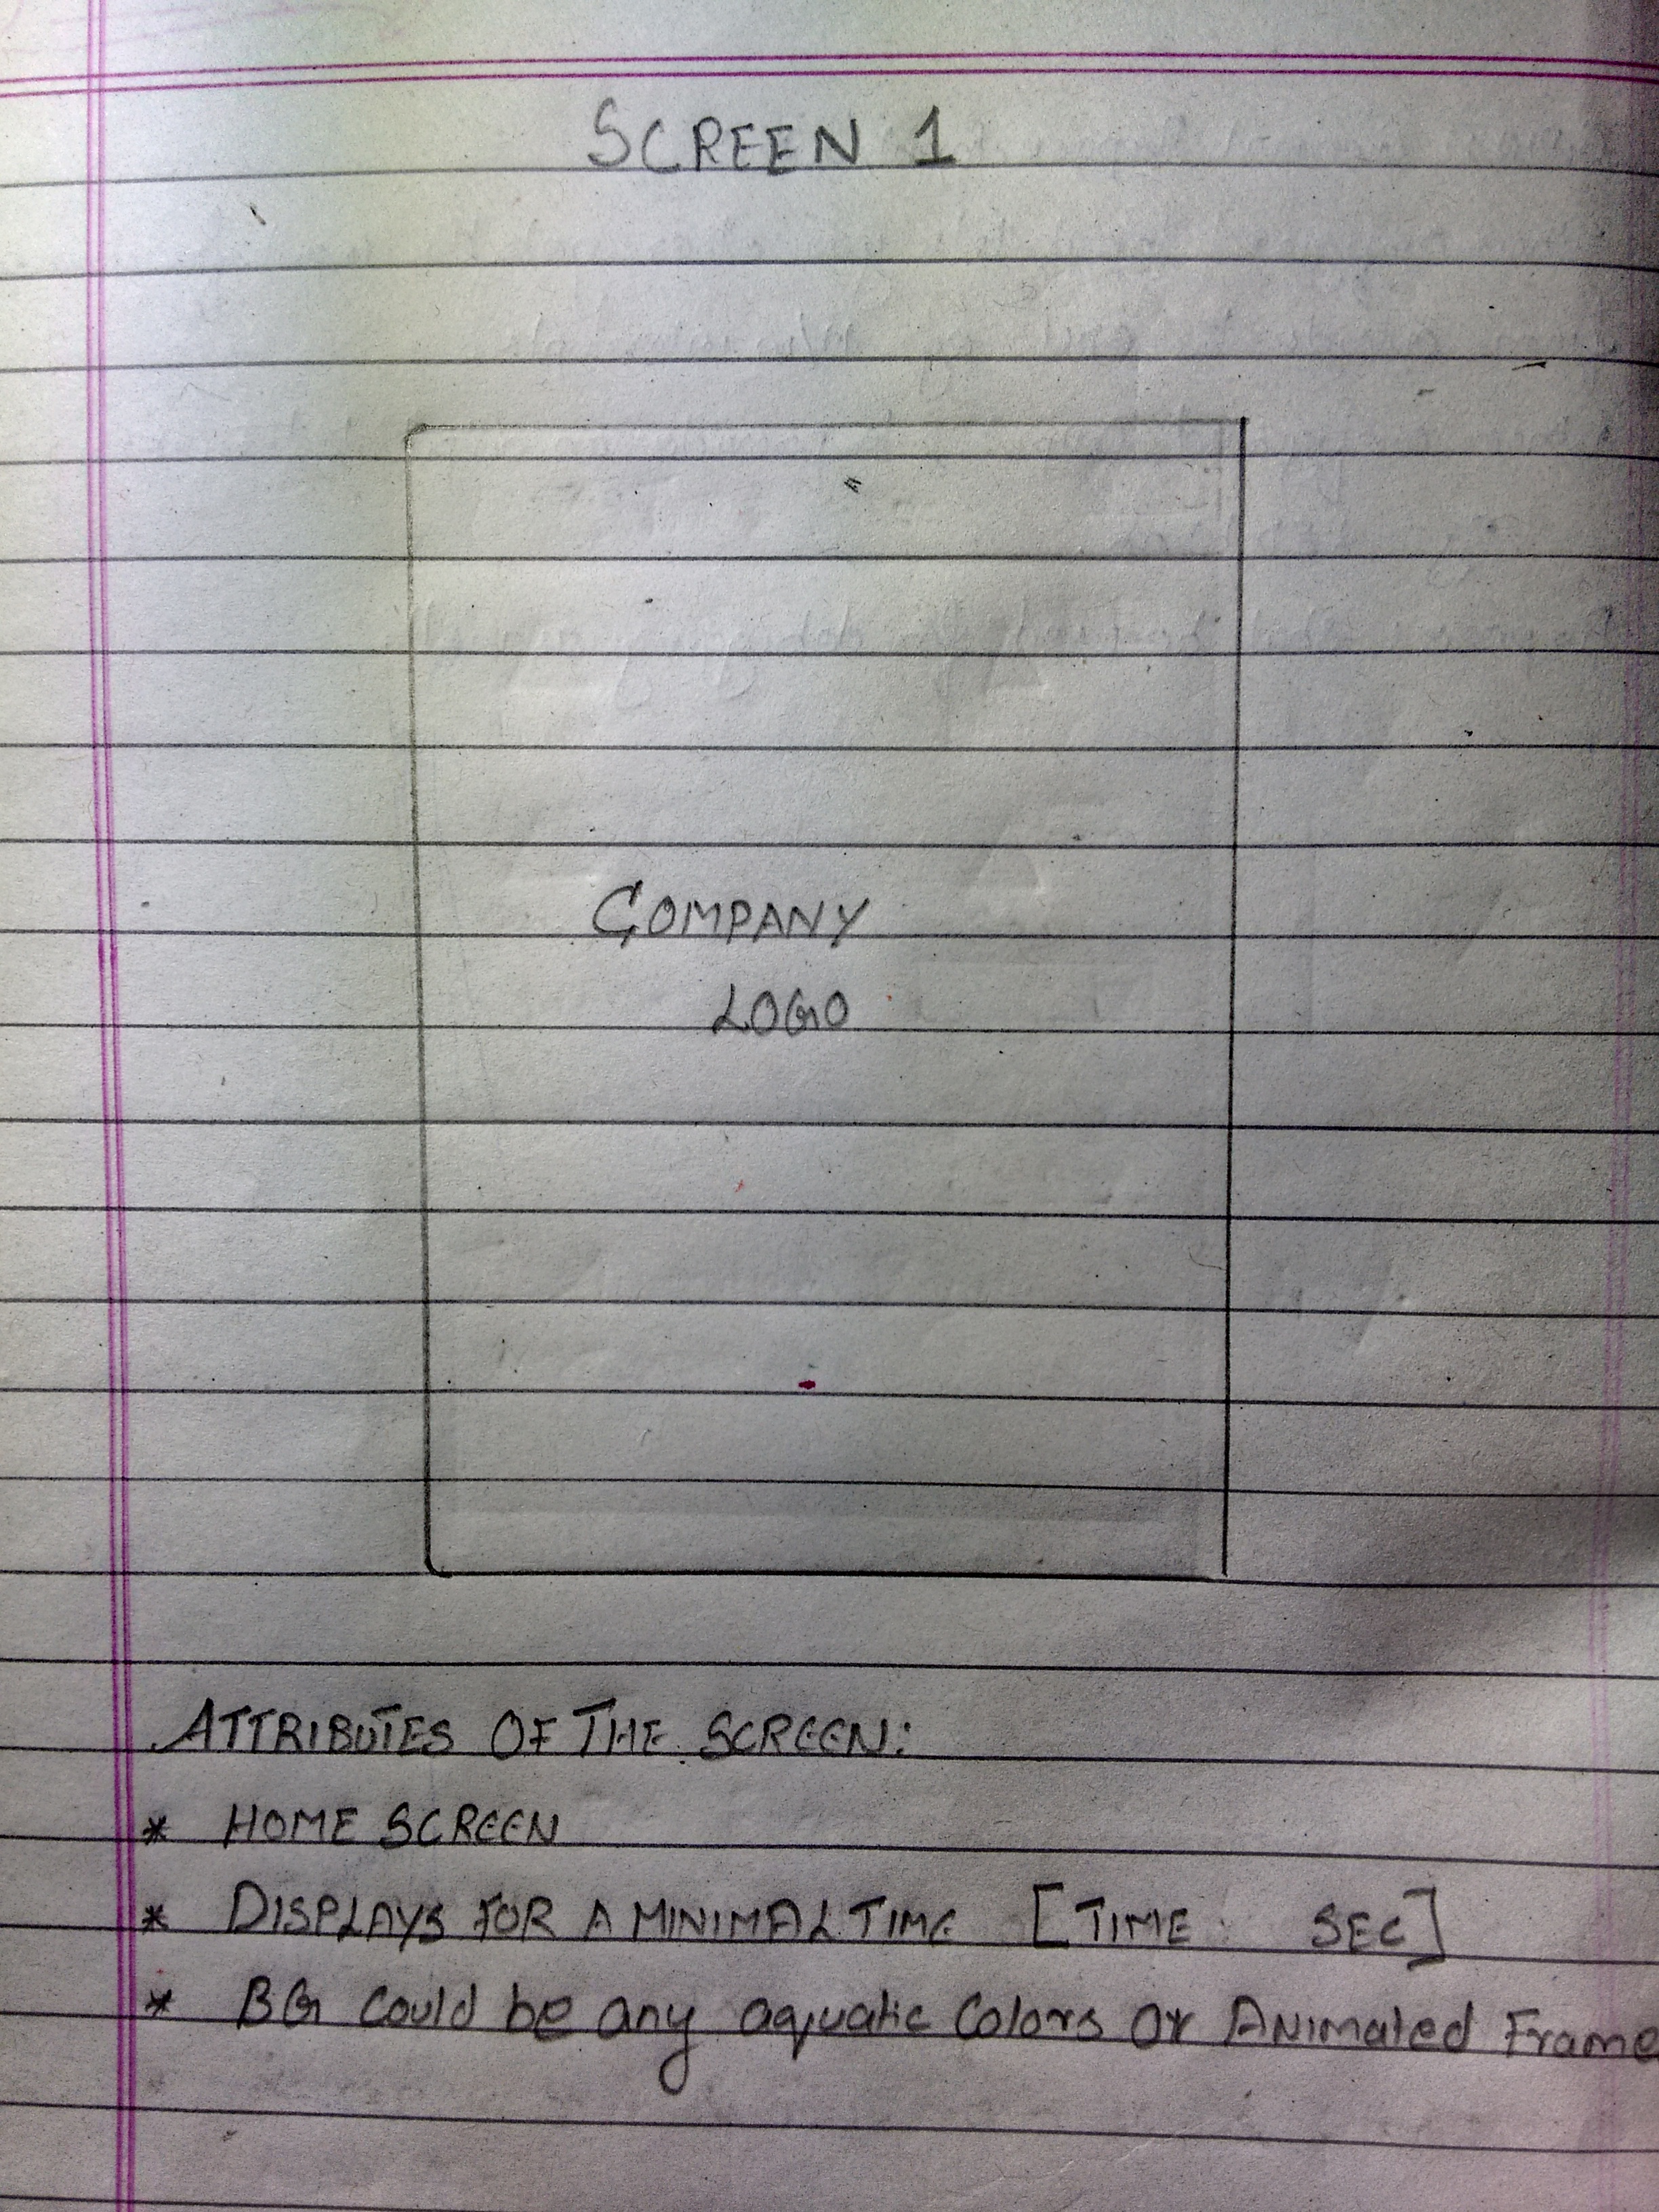 SCREEN 1
COMPANY
LOGO
ATTRIBUTES OF THE SCREEN:
* HOME SCREEN
* DISPLAYS FOR A MINIMAL TIME [TIME SEC]
* BG could be any aquatic Colors or Animated Frame